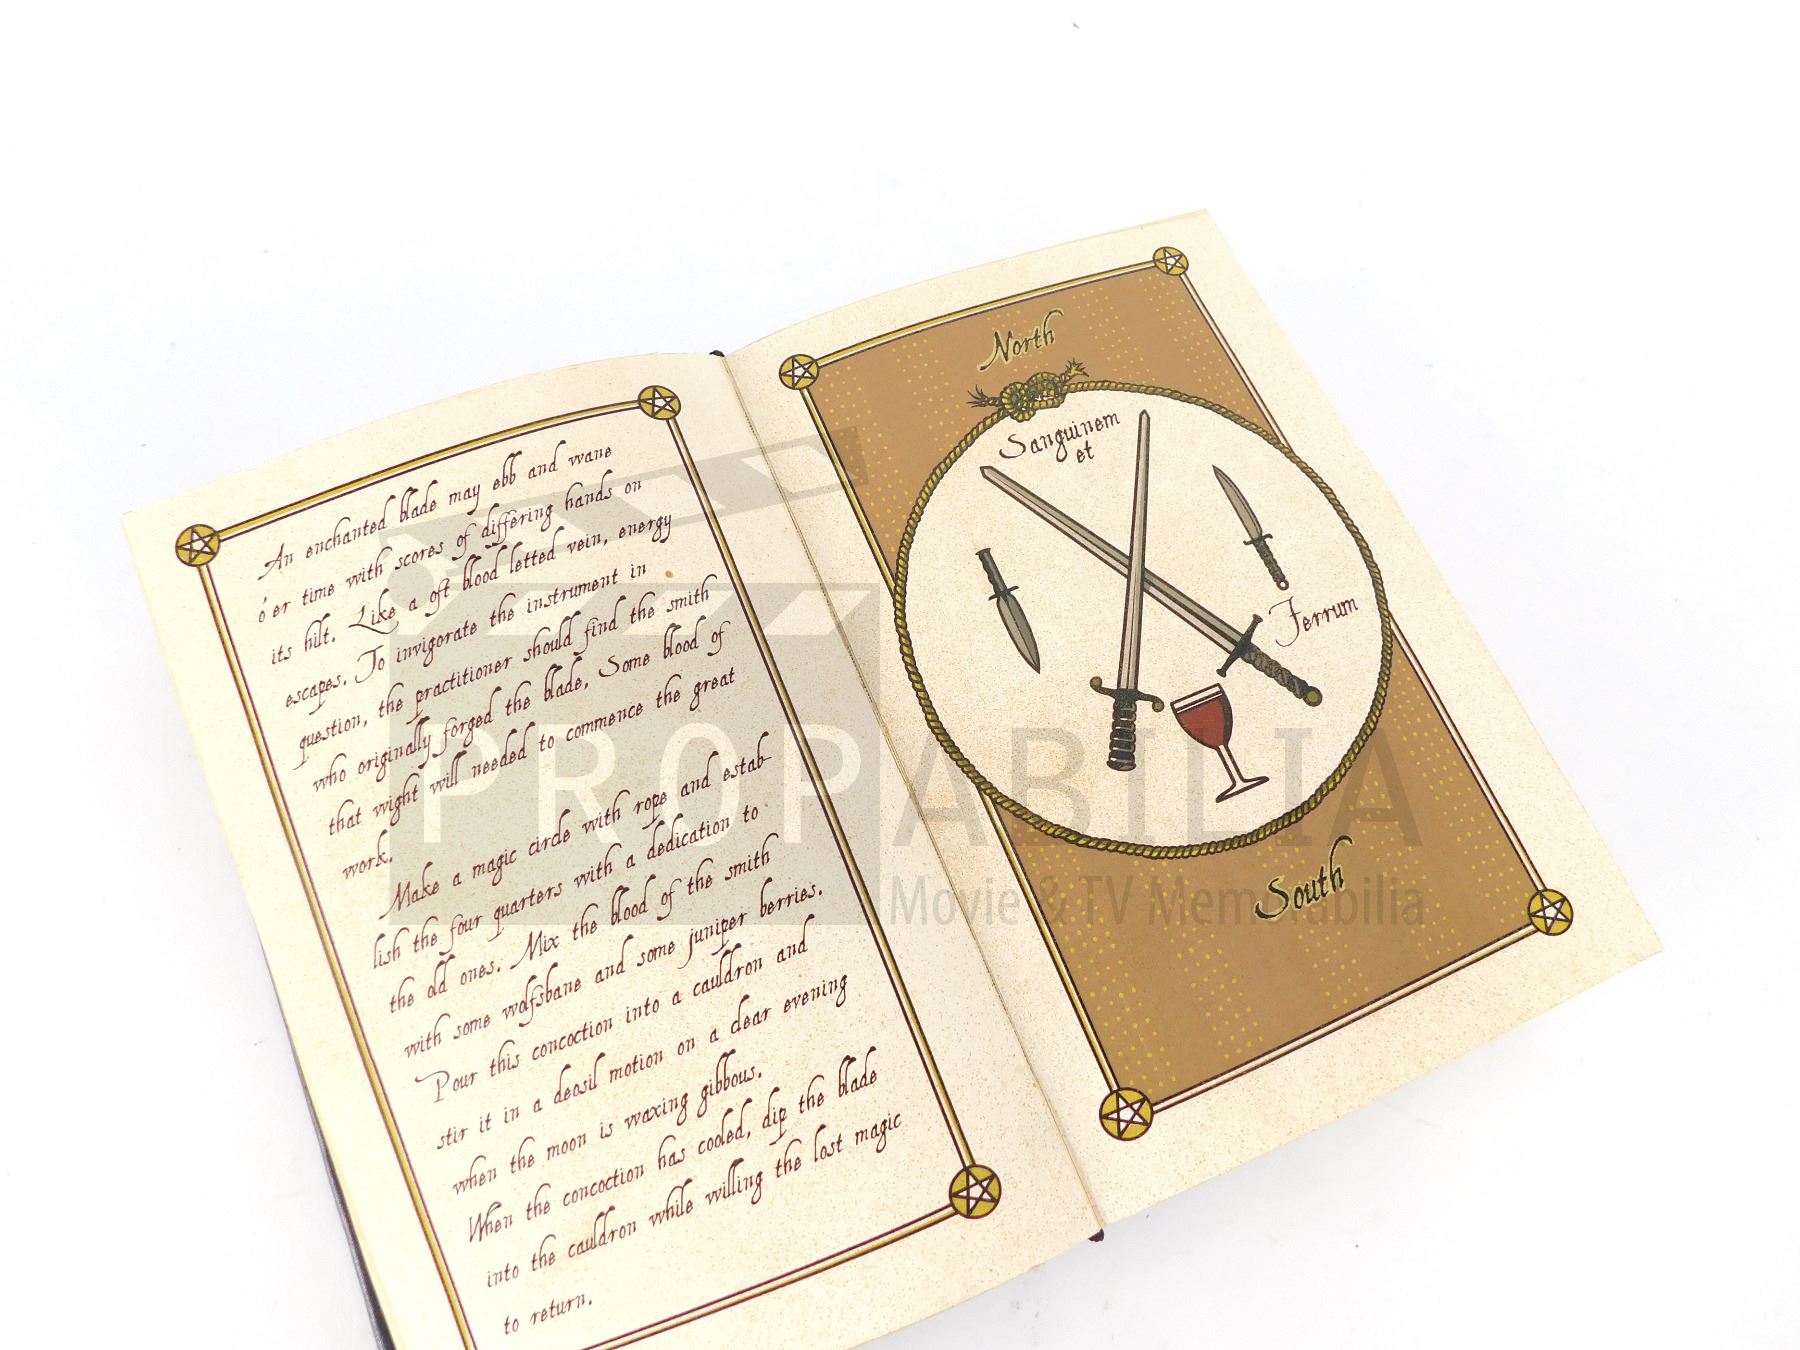 An enchanted blade may ebb and wane
o'er time with scores of differing hands on
its hilt. Like a oft blood letted vein, energy
escapes. To invigorate the instrument in
question, the practitioner should find the smith
who originally forged the blade. Some blood of
that wight will needed to commence the great
work.
Make a magic circle with rope and estab-
lish the four quarters with a dedication to
the old ones. Mix the blood of the smith
with some wolfsbane and some juniper berries.
Pour this concoction into a cauldron and
stir it in a deosil motion on a clear evening
when the moon is waxing gibbous.
When the concoction has cooled, dip the blade
into the cauldron while willing the lost magic
to return.
North
Sanguinem
et
Ferrum
South
PROPABILIA
Movie & TV Memorabilia